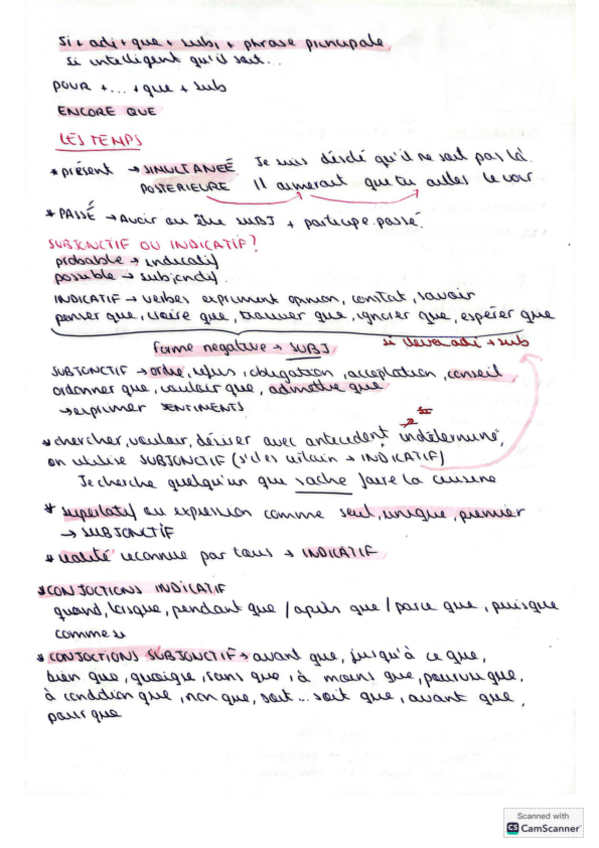 Si + adj + que + subj + phrase principale
Si intelligent qu'il soit...
POUR +... + que + sub
ENCORE QUE
LES TEMPS
* présent → SIMULTANEÉ Je suis désolé qu'il ne soit pas là.
POSTERIEURE Il aimerait que tu ailles le voir
* PASSÉ → Avoir ou être SUBJ + participe passé.
SUBJONCTIF OU INDICATIF?
probable → indicatif
possible → subjonctif.
INDICATIF → verbes expriment opinion, constat, savoir
penser que, croire que, trouver que, ignorer que, espérer que
forme negative → SUBJ
si adj + sub
SUBJONCTIF → ordre, refus, obligation, acceptation, conseil
ordonner que, vouloir que, admettre que
→ exprimer SENTIMENTS
* chercher, vouloir, désirer avec antecedent indéterminé,
on utilise SUBJONCTIF (s'il est certain → INDICATIF)
Je cherche quelqu'un que sache faire la cuisine
* superlatif ou expression comme seul, unique, premier
→ SUBJONCTIF
* realité reconnue par tous → INDICATIF
* CONJOCTIONS INDICATIF
quand, lorsque, pendant que / après que / parce que, puisque
comme si
* CONJOCTIONS SUBJONCTIF → avant que, jusqu'à ce que,
bien que, quoique, sans que, à moins que, pourvu que,
à condition que, non que, soit... soit que, avant que,
pour que
Scanned with
CS CamScanner